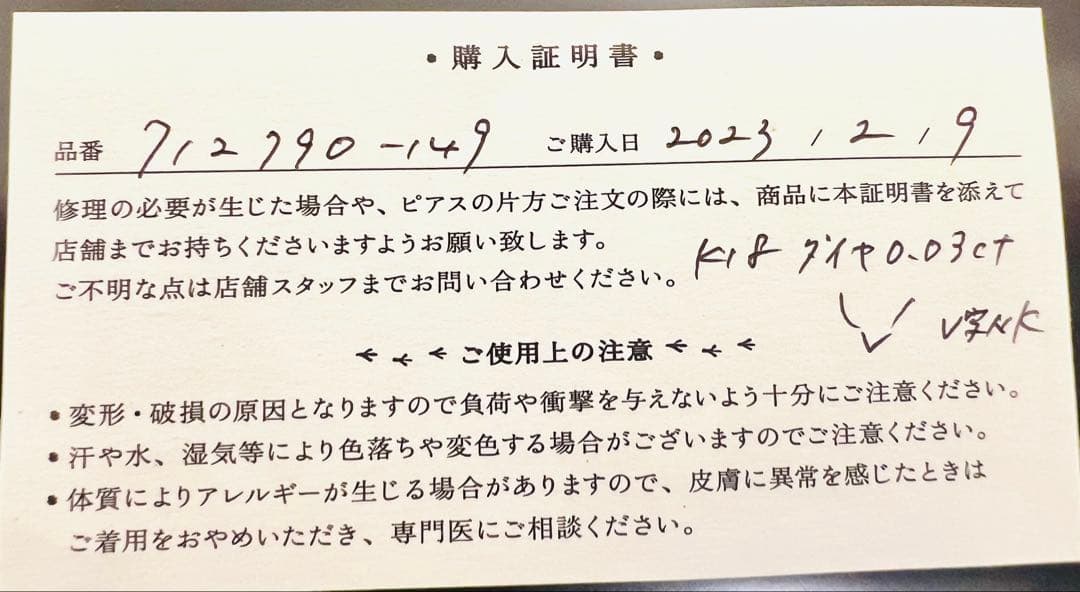 ・購入証明書・
品番 712790-149 ご購入日 2023.2.9
修理の必要が生じた場合や、ピアスの片方ご注文の際には、商品に本証明書を添えて
店舗までお持ちくださいますようお願い致します。
ご不明な点は店舗スタッフまでお問い合わせください。
K18 ダイヤ0.03ct
V字NK
ご使用上の注意
・変形・破損の原因となりますので負荷や衝撃を与えないよう十分にご注意ください。
・汗や水、湿気等により色落ちや変色する場合がございますのでご注意ください。
・体質によりアレルギーが生じる場合がありますので、皮膚に異常を感じたときは
ご着用をおやめいただき、専門医にご相談ください。